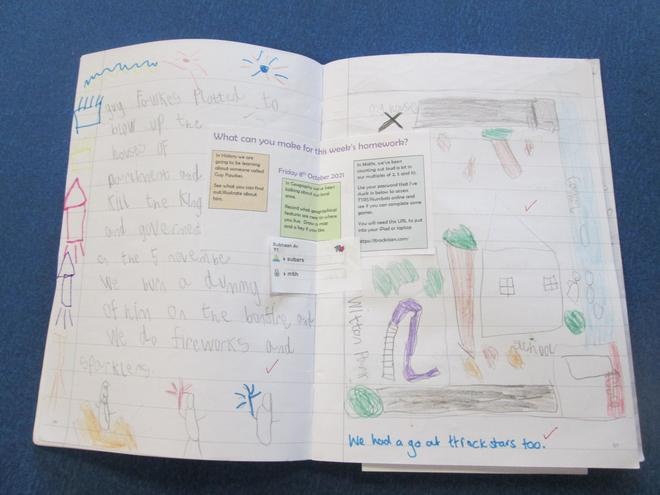 guy Fawkes Plotted to
blow up the
houses of
parliament and
Kill the King
and goverment
on the 5 november
We burn a dummy
of him on the bonfire and
We do fireworks and
sparklers.
What can you make for this week's homework?
Friday 8th October 2021
In History we are
going to be learning
about someone called
Guy Fawkes.
See what you can find
out/illustrate about
him.
In Geography we've been
talking about our local
area.
Record what geographical
features are near or where
you live. Draw a map
and a key if you can.
In Maths, we've been
counting out loud a lot in
our multiples of 2, 5 and 10.
Use your password that I've
stuck in below to access
TTRS Numbots online and
see if you can complete some
games.
You will need this URL to put
into your iPad or laptop
https://ttrockstars.com/
my house
Witton Park
School
We had a go at ttrockstars too.